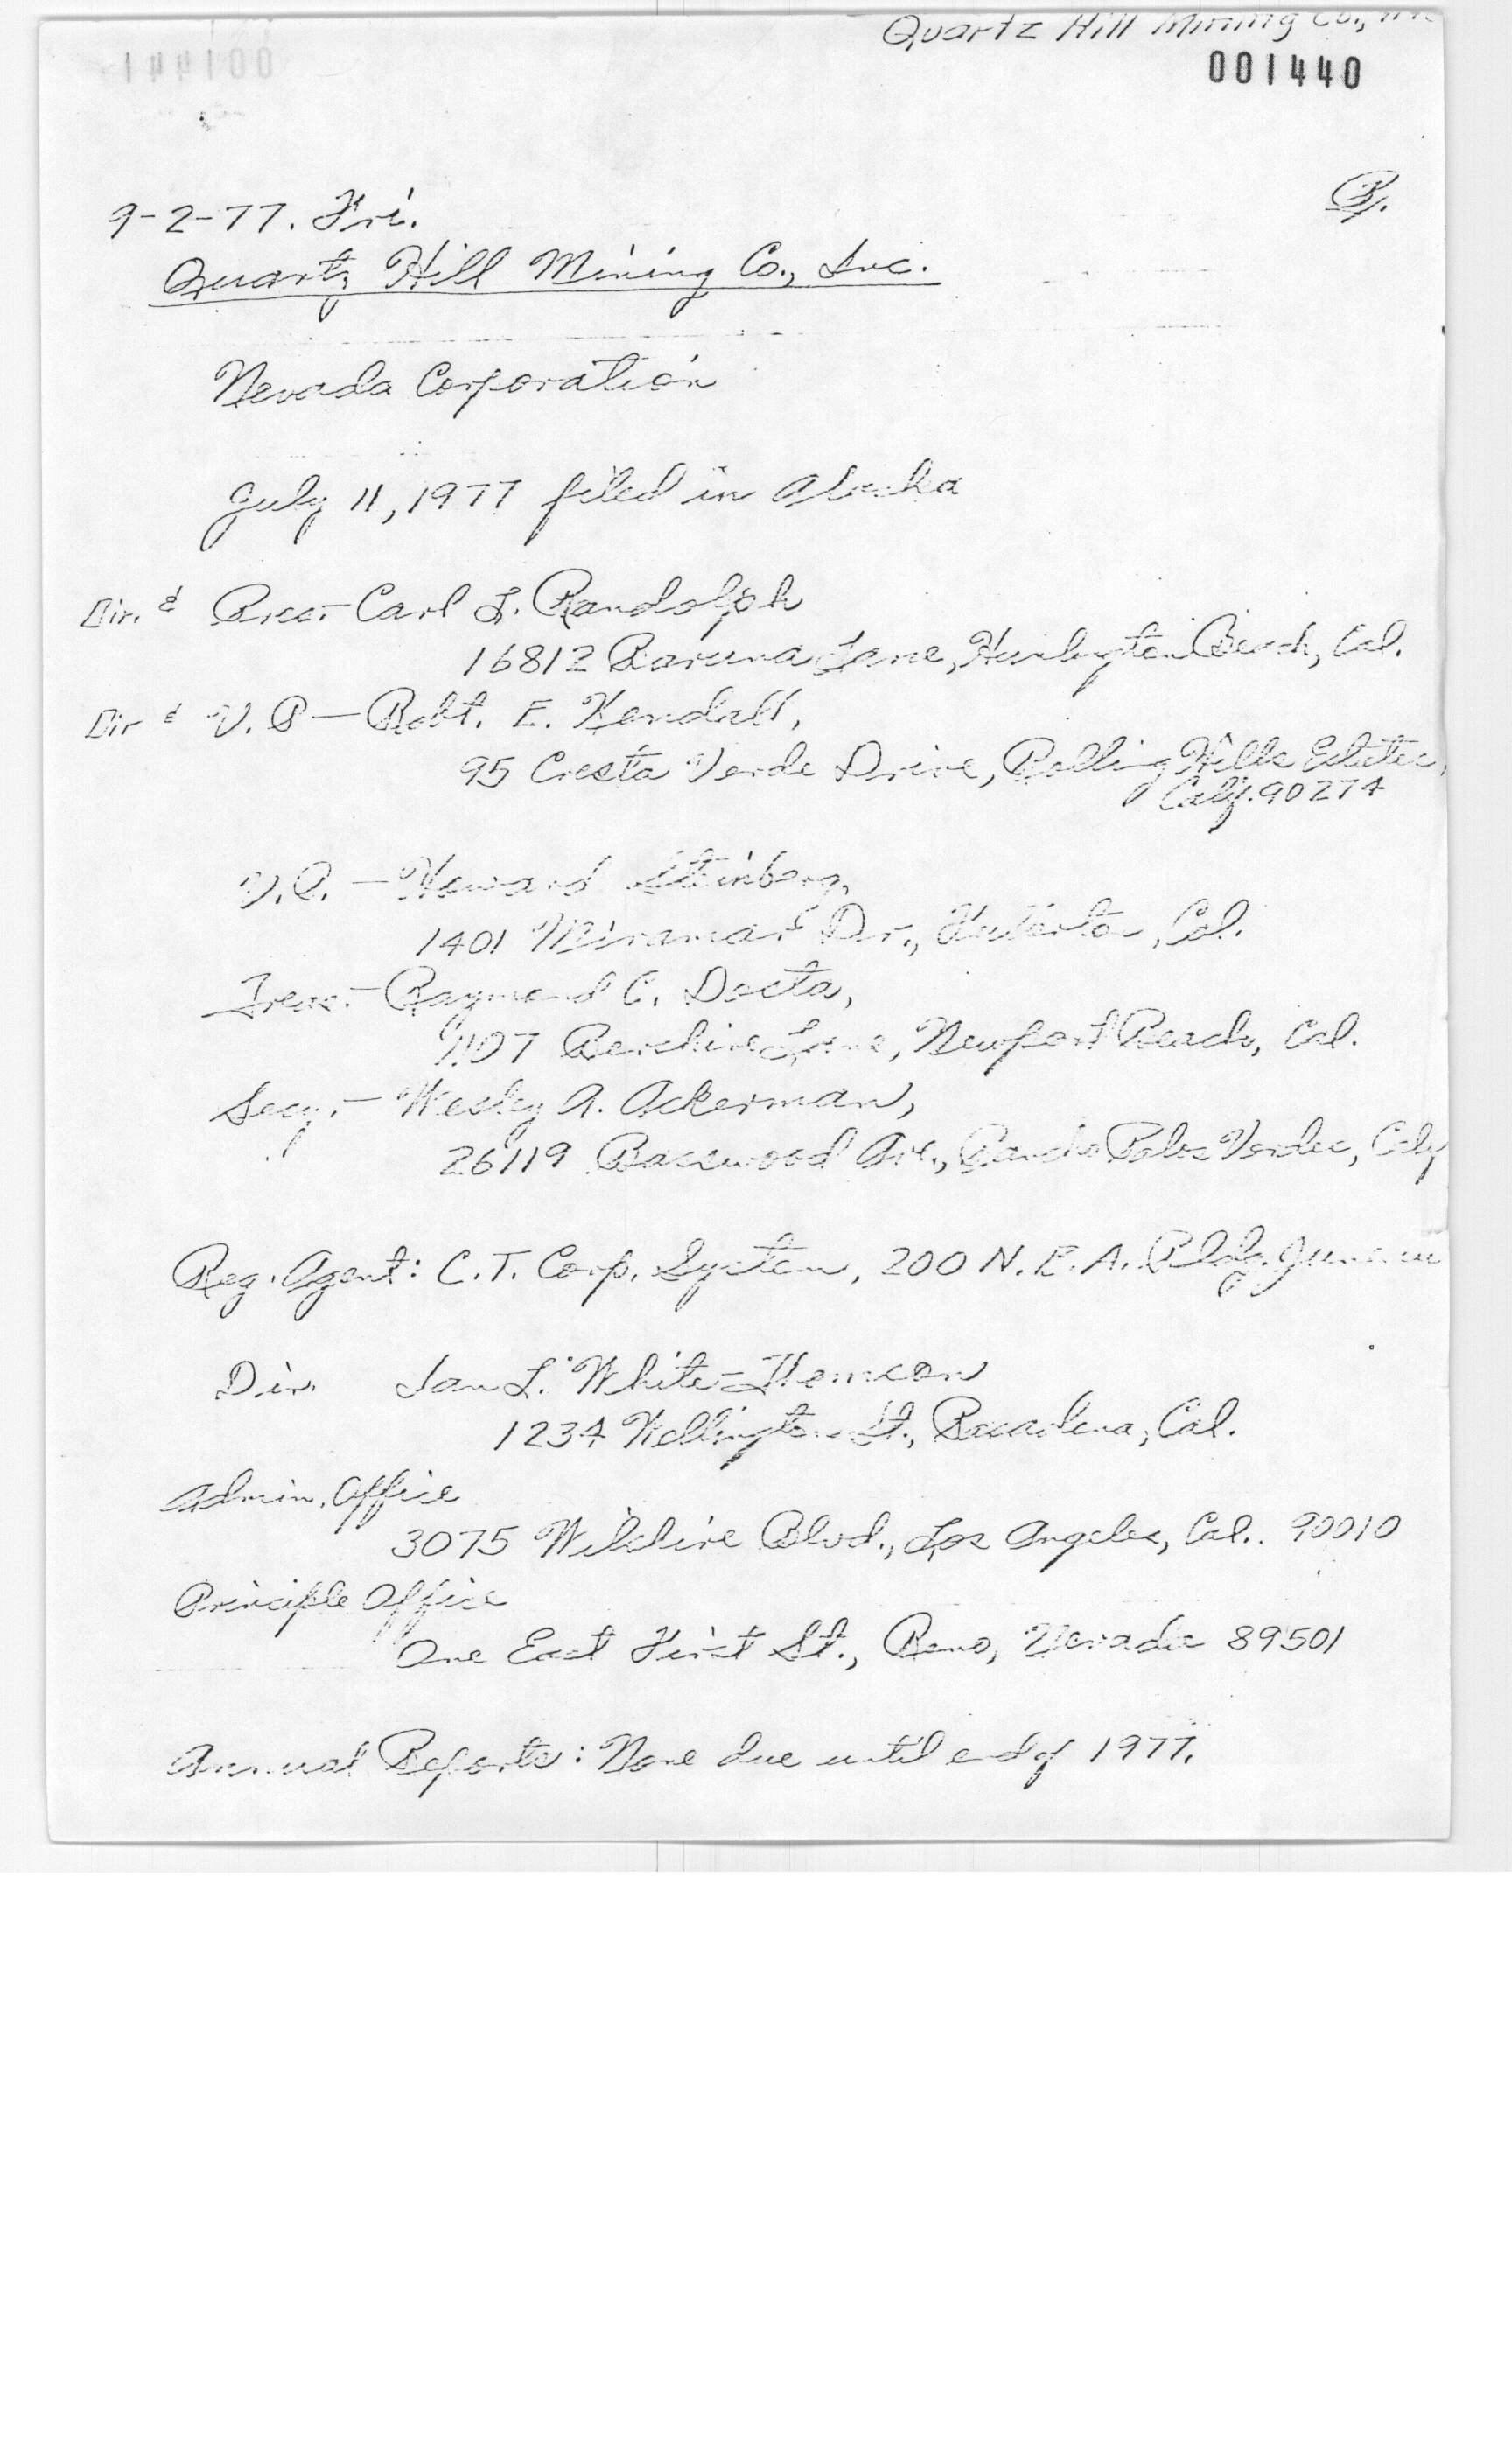 Quartz Hill Mining Co.,
001440
9-2-77. Fri.
Quartz Hill Mining Co., Inc.
Nevada Corporation
July 11, 1977 filed in Alaska
Dir. & Pres. - Carl L. Randolph
16812 Lane, Huntington Beach, Cal.
Dir & V.P - Robt. E. Kendall,
95 Cresta Verde Drive, Rolling Hills Estates,
Calif. 90274
V.P. - Howard Steinberg,
1401 Miramar Dr., Fullerton, Cal.
Treas. - Raymond C.
1107 Lane, Newport Beach, Cal.
Secy. - Wesley A. Ackerman,
26119 Basswood Ave., Rancho Palos Verdes, Calif
Reg. Agent: C.T. Corp. System, 200 N.B.A. Bldg. Juneau
Dir. Ian L. White-Thomson
1234 Wellington St., Pasadena, Cal.
Admin. Office
3075 Wilshire Blvd., Los Angeles, Cal. 90010
Principle Office
One East First St., Reno, Nevada 89501
Annual Reports: None due until end of 1977.